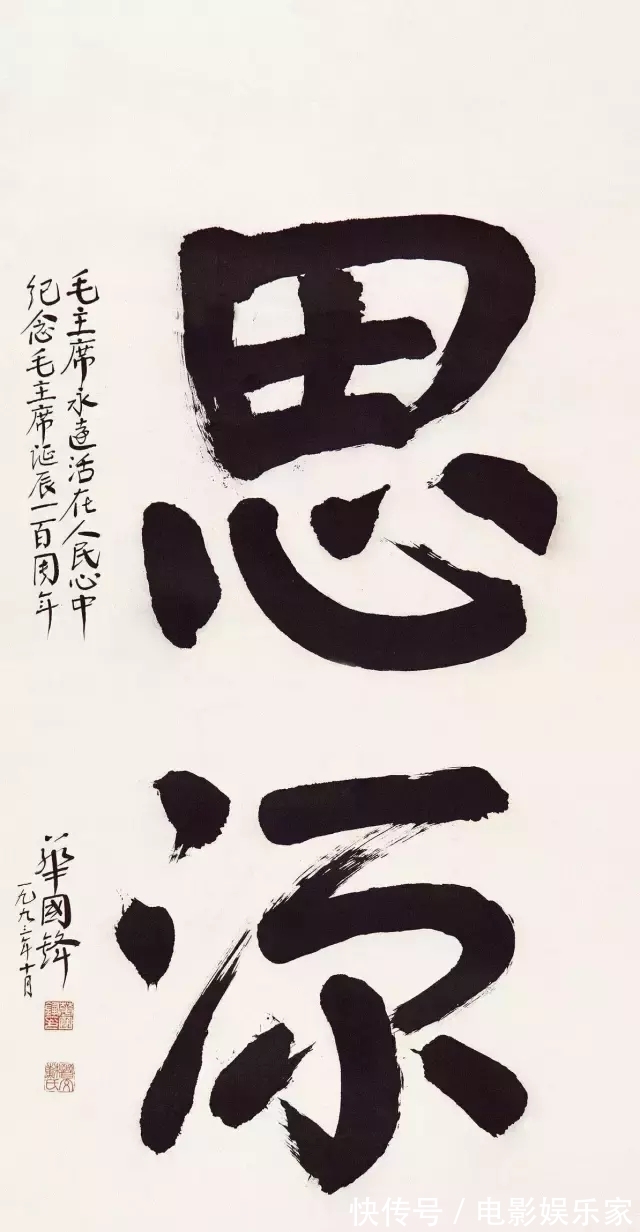 思源
毛主席永遠活在人民心中
纪念毛主席诞辰一百周年
華國鋒
一九九三年十月
快传号 / 电影娱乐家